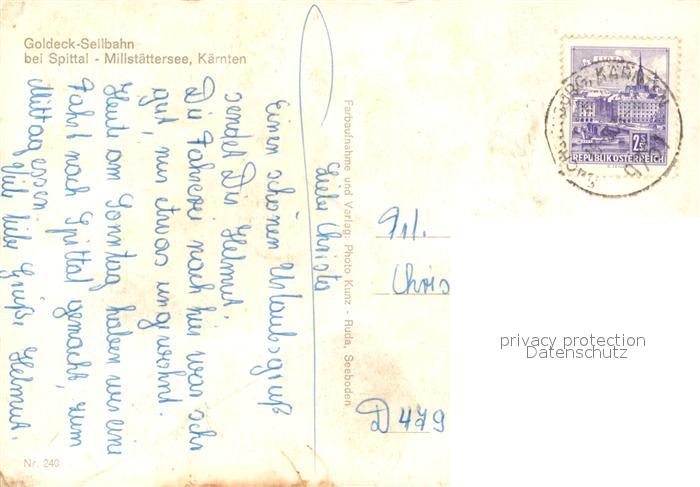 Goldeck-Seilbahn
bei Spittal - Millstättersee, Kärnten
Liebe Christa
Einen schönen Urlaubsgruß
sendet Dir Helmut.
Die Fahrerei nach hier war sehr
gut, nur etwas ungewohnt.
Heut am Sonntag haben wir eine
Fahrt nach Spittal gemacht, zum
Mittagessen.
Viele liebe Grüße Helmut.
Nr. 240
Farbaufnahme und Verlag: Photo Kunz - Ruda, Seeboden
2.50 S
REPUBLIK ÖSTERREICH
KÄRNTEN
Frl.
Chris
D 479
privacy protection
Datenschutz